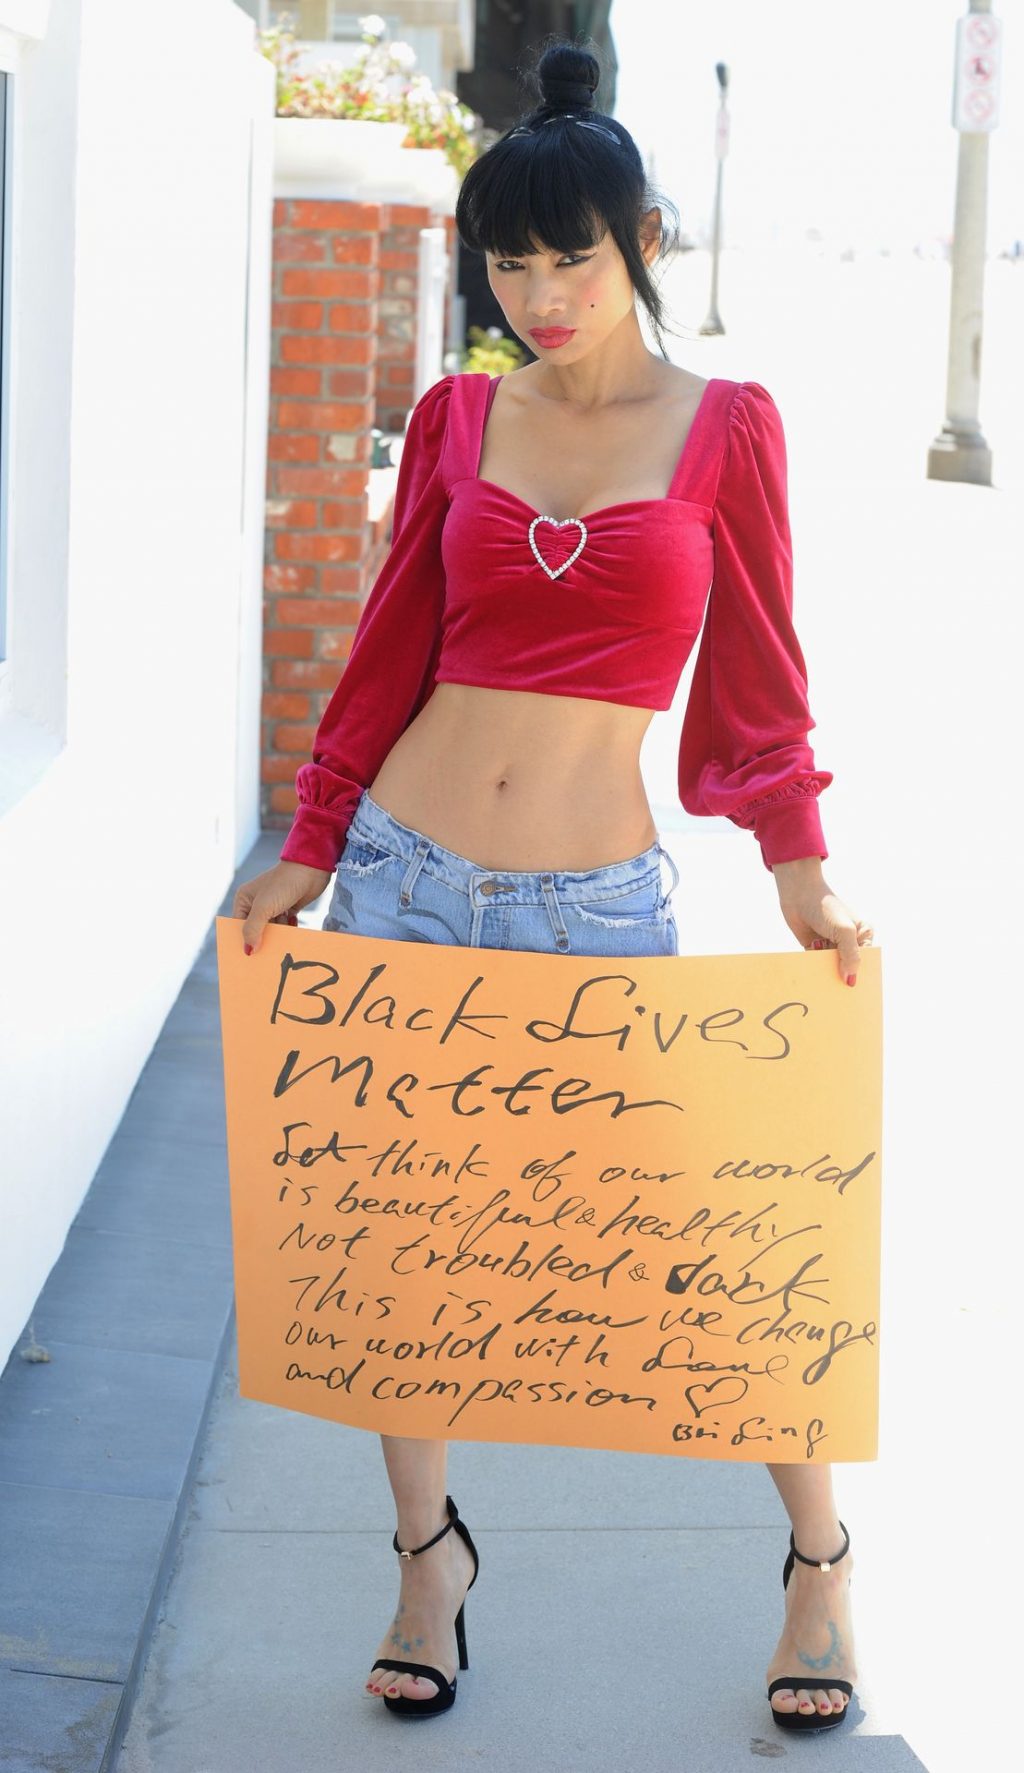 Black Lives
Matter
Let think of our world
is beautiful & healthy
Not troubled & dark
This is how we change
our world with Love
and compassion ♡
Bai Ling